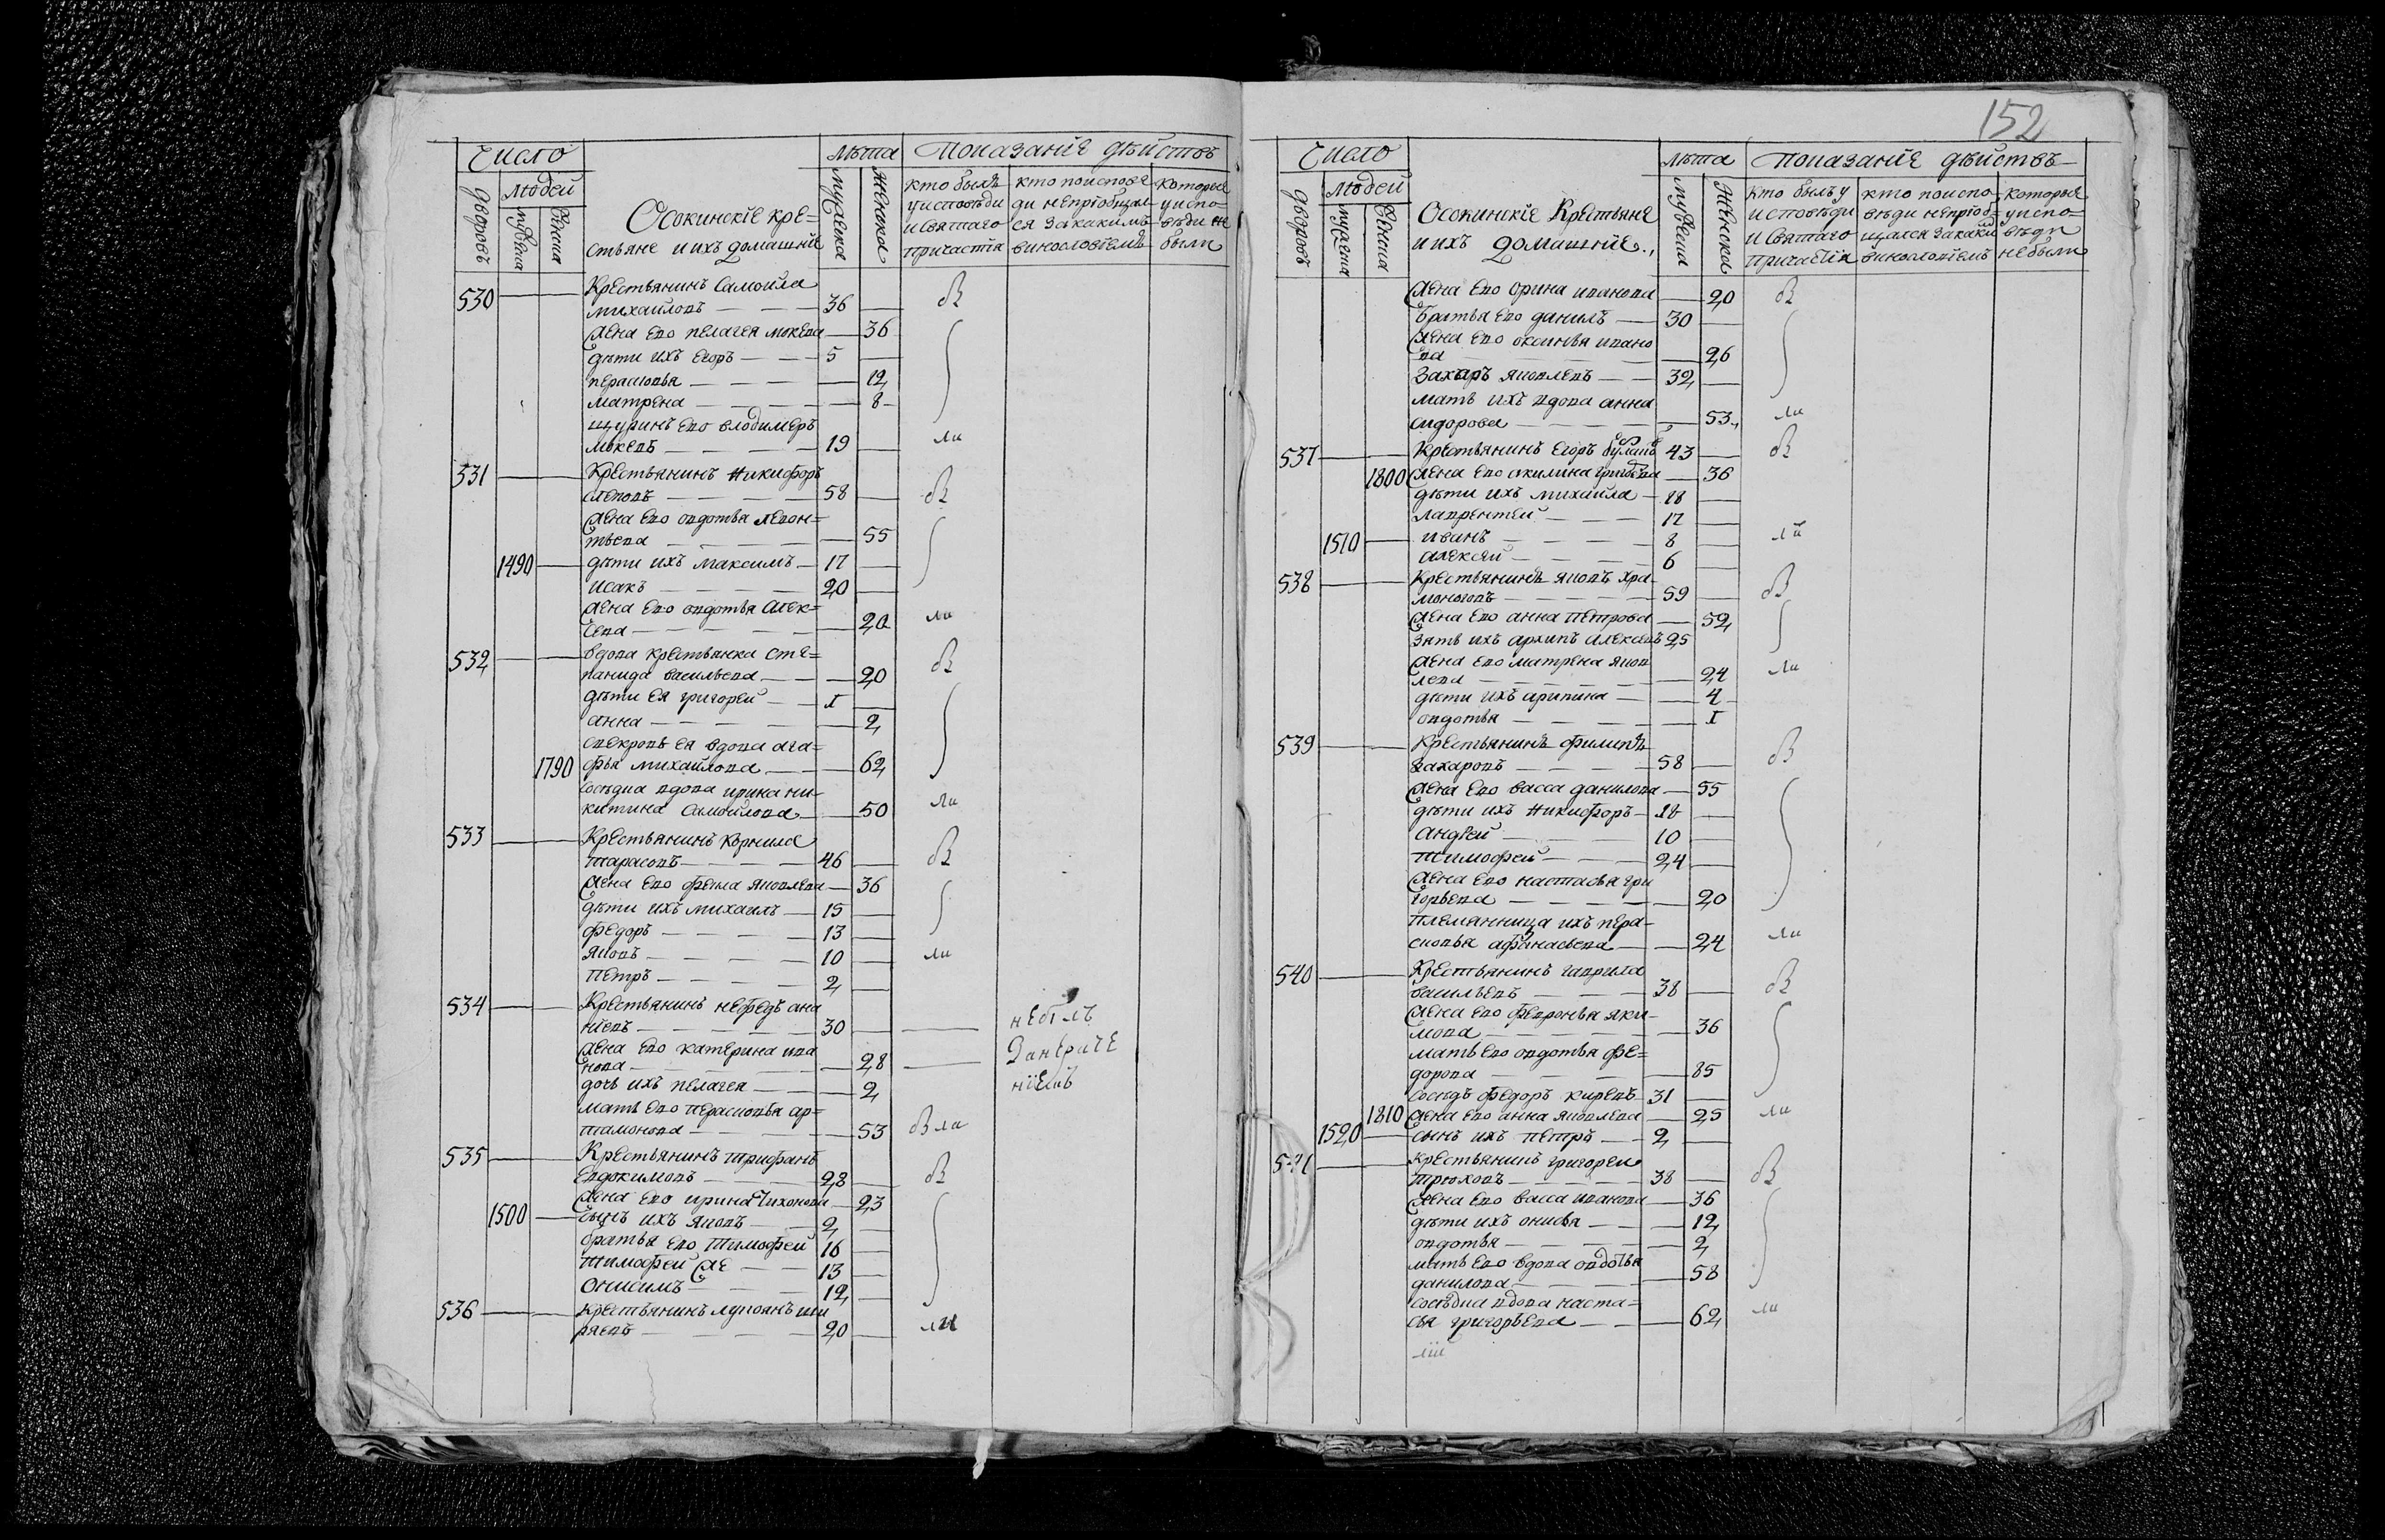 число
людей
дворовъ
мужска
женска
Осокинскіе кре=
стьяне и ихъ домашніе
лѣта
мужска
женска
показаніе дѣйствъ
кто былъ
у исповѣди
и святаго
причастія
кто по испове
ди непріобщал
ся за какимъ
винословіемъ
которые
у испо=
вѣди не
были
530 Крестьянинъ Самойла
михайловъ 36
жена ево пелагея мокеева 36
дѣти ихъ егоръ 5
перасковья 12
матрена 8
шуринъ ево влодимеръ
мокеевъ 19
531 Крестьянинъ Никифоръ
слеповъ 58
жена ево овдотья левон=
тьева 55
1490 дѣти ихъ максимъ 17
исакъ 20
жена ево овдотья алек=
сева 20
532 вдова крестьянка сте=
панида васильева 20
дѣти ея григорей 1
анна 2
свекровь ея вдова ага=
1790 фья михайлова 62
сосѣдка вдова ирина ни=
китина самойлова 50
533 Крестьянинъ Корнила
тарасовъ 46
жена ево фекла яковлева 36
дѣти ихъ михаилъ 15
федоръ 13
яковъ 10
петръ 2
534 Крестьянинъ нефедъ ана
ніевъ 30 небылъ
жена ево катерина ива
нова 28
дочь ихъ пелагея 2
мать ево перасковья ар=
тамонова 53
535 Крестьянинъ трифанъ
евдокимовъ 28
жена ево ирина тихонова 23
1500 сынъ ихъ яковъ 2
братья ево тимофей 16
тимофей же 13
онисимъ 12
536 крестьянинъ лукоянъ ши
ряевъ 20
152
число
людей
дворовъ
мужска
женска
Осокинскіе Крестьяне
и ихъ домашніе.,
лѣта
мужска
женска
показаніе дѣйствъ
кто былъ у
исповѣди
и святаго
причастія
кто по испо
вѣди непріоб=
щался за каки
винословіемъ
которые
у испо=
вѣди
небыли
жена ево орина иванова 20
братья ево данилъ 30
жена ево оксинья ивано
ва 26
захаръ яковлевъ 32
мать ихъ вдова анна
сидорова 53
537 Крестьянинъ Егоръ 43
1800 жена ево акилина григорьева 36
дѣти ихъ михайла 18
лаврентей 17
1510 иванъ 8
алексѣй 6
538 Крестьянинъ яковъ хра=
моноговъ 59
жена ево анна петрова 52
зять ихъ архипъ алексѣевъ 25
жена ево матрена яков
лева 24
дѣти ихъ арипина 4
овдотья 1
539 Крестьянинъ филипъ
захаровъ 58
жена ево васса данилова 55
дѣти ихъ никифоръ 18
андрей 10
тимофей 24
жена ево настасья гри
горьева 20
племянница ихъ пера=
сковья афанасьева 24
540 Крестьянинъ гаврила
васильевъ 38
жена ево февронья яки=
мова 36
мать ево овдотья фе=
дорова 85
сосѣдъ федоръ киревъ 31
1810 жена ево анна яковлева 25
1520 сынъ ихъ петръ 2
541 крестьянинъ григореи
трюховъ 38
жена ево васса иванова 36
дѣти ихъ онисья 12
овдотья 2
мать ево вдова овдотья
данилова 58
сосѣдка вдова наста=
сья григорьева 62